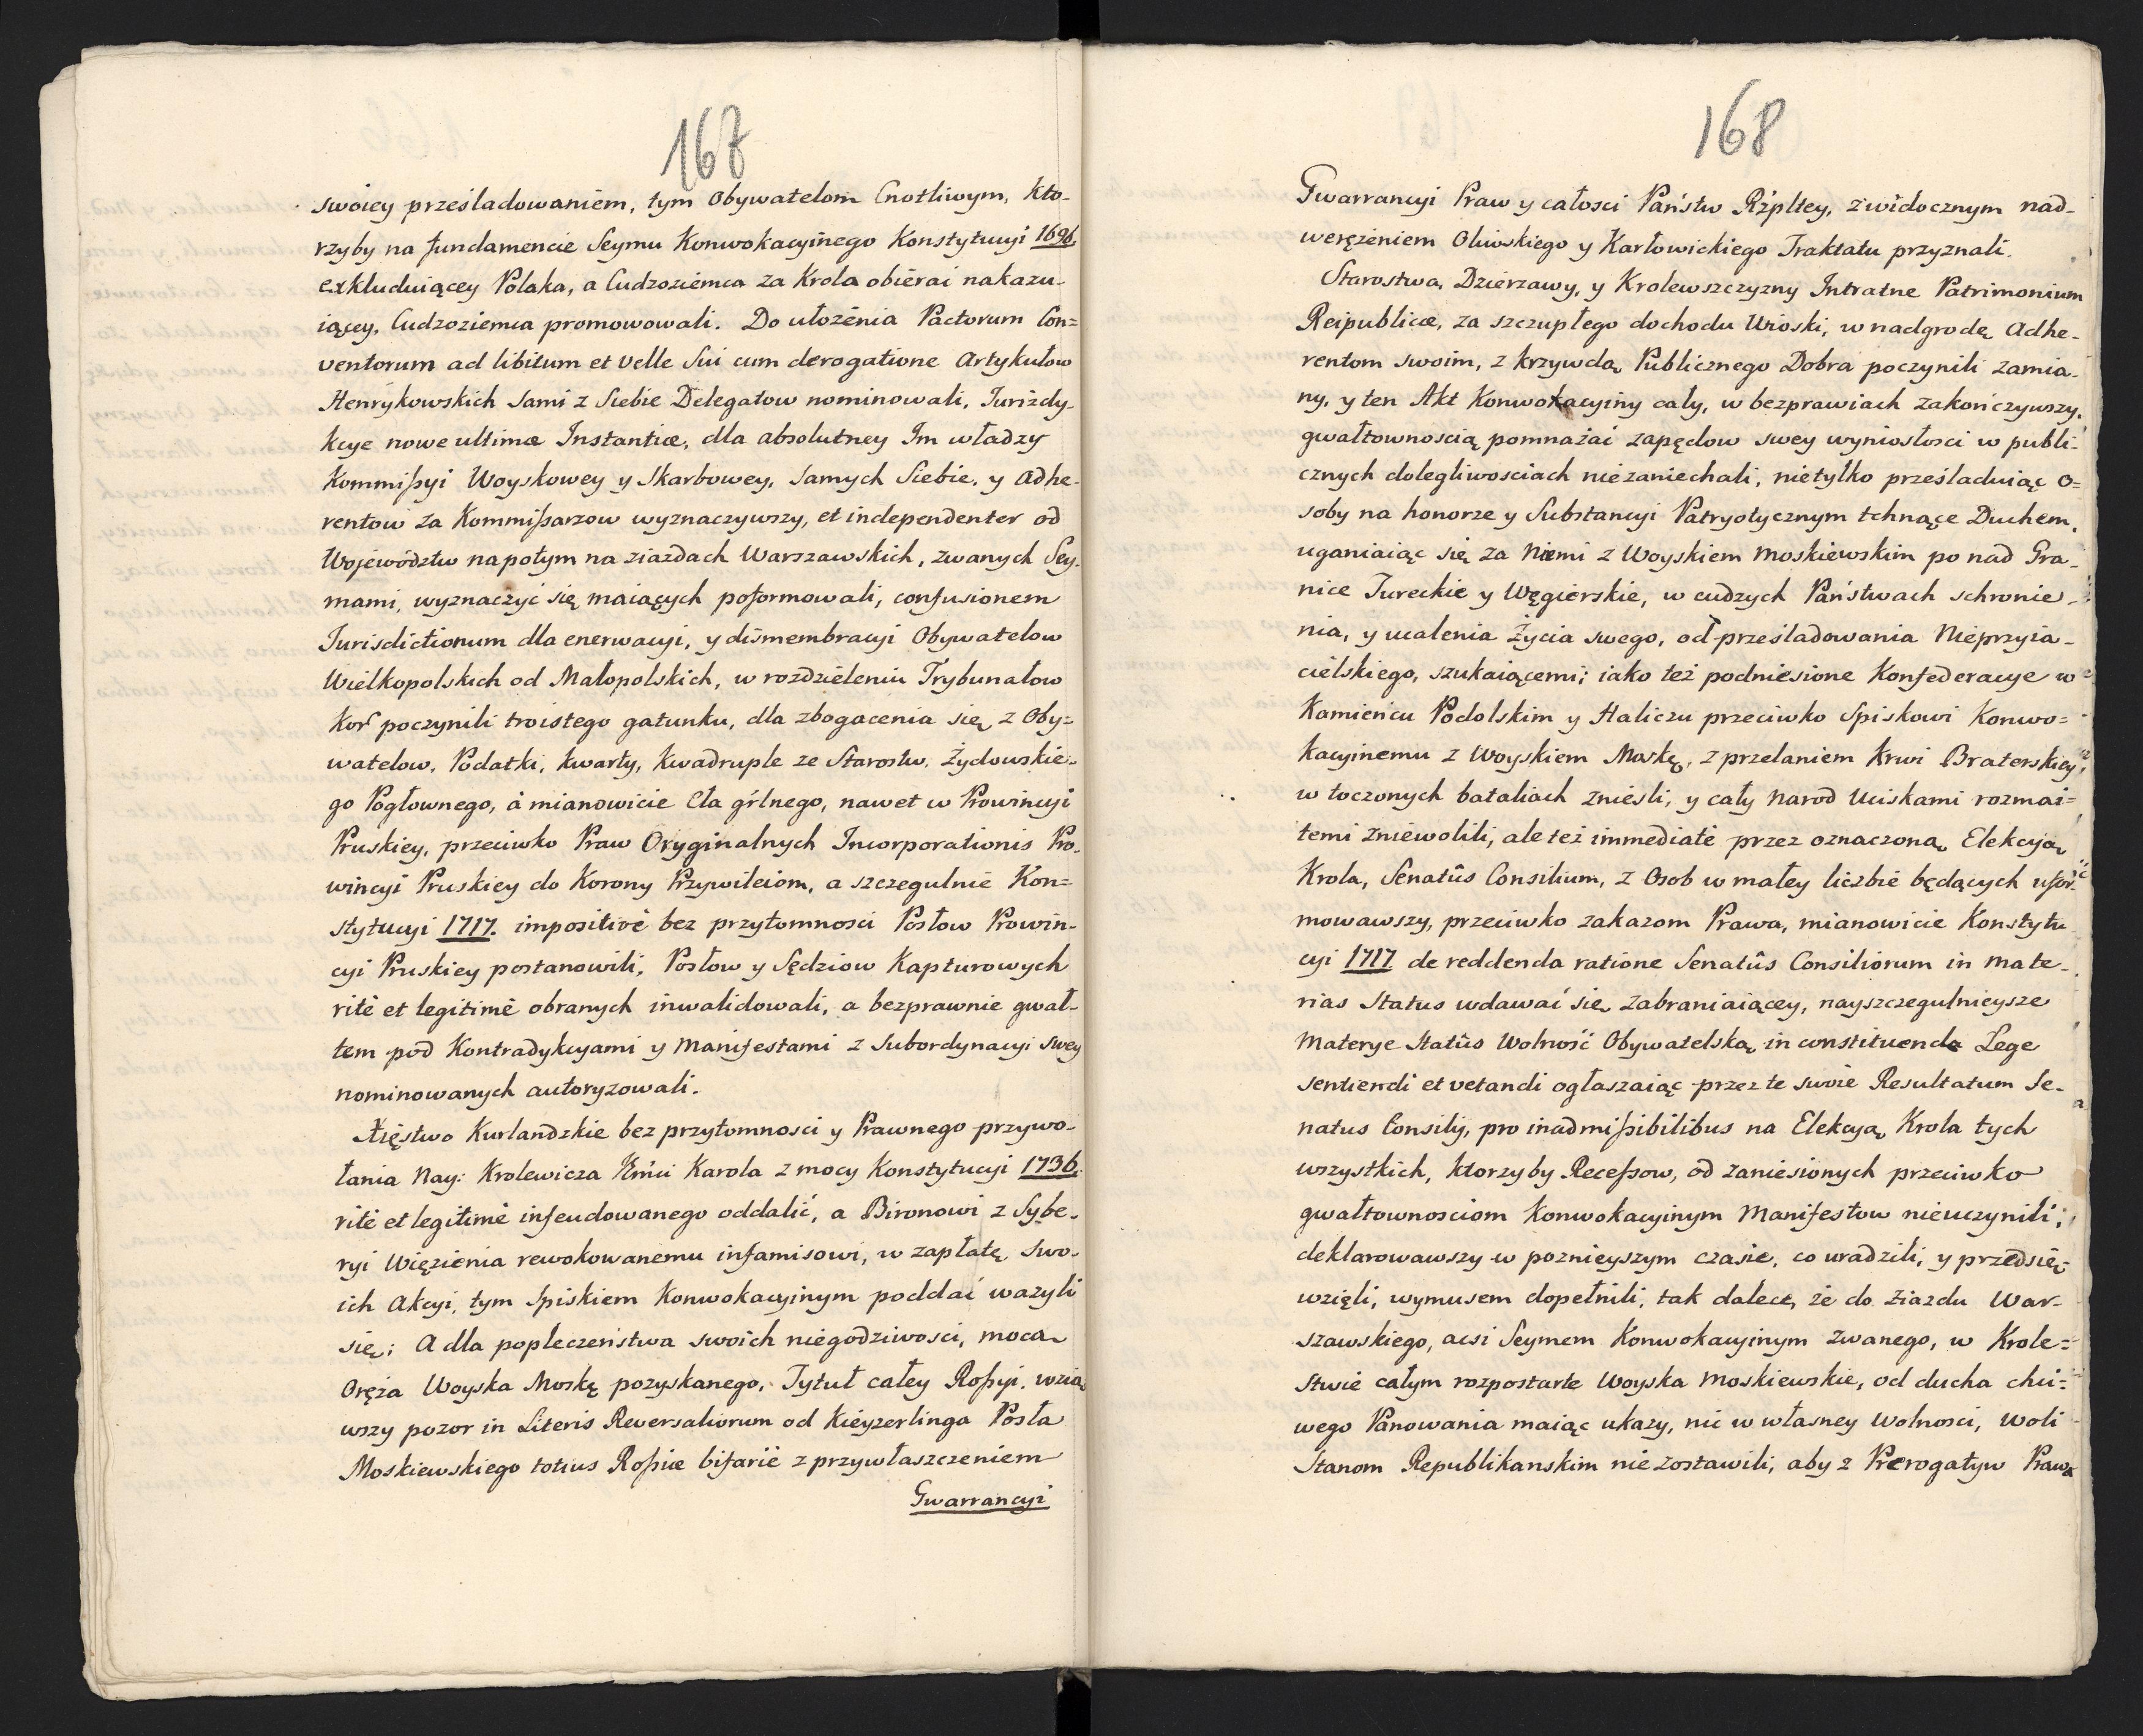 167
swoiey prześladowaniem, tym Obywatelom Cnotliwym, Kto-
rzyby na fundamencie Seymu Konwokacyinego Konstytucyi 1696.
exkluduiącey Polaka, a Cudzoziemca za Krola obierai nakazu-
iącey, Cudzoziemca promowowali. Do ułożenia Pactorum Con=
ventorum ad libitum et velle Sui cum derogatione Artykułow
Henrykowskich Sami z Siebie Delegatow nominowali, Jurizdy-
kcye nowe ultimæ Instantiæ, dla absolutney Im władzy
Kommißyi Woyskowey y Skarbowey, Samych Siebie, y Adhe-
rentow za Kommißarzow wyznaczywszy, et independenter od
Wojewodztw napotym na ziazdach Warszawskich, zwanych Sey-
mami, wyznaczyć się maiących poformowali, confusionem
Jurisdictionum dla enerwacyi, y dismembracyi Obywatelow
Wielkopolskich od Małopolskich, w rozdzieleniu Trybunałow
Kor poczynili troistego gatunku, dla zbogacenia się z Oby=
watelow, Podatki, kwarty, Kwadruple ze Starostw, Żydowskie-
go Pogłownego, á mianowicie Cła grlnego, nawet w Prowincyi
Pruskiey, przeciwko Praw Oryginalnych Incorporationis Pro-
wincyi Pruskiey do Korony Przywileiom, a szczegulnie Kon=
stytucyi 1717. impositivè bez przytomnosci Posłow Prowin-
cyi Pruskiey postanowili, Posłow y Sędziow Kapturowych
ritè et legitimè obranych inwalidowali, a bezprawnie gwał-
tem pod Kontradykcyami y Manifestami z Subordynacyi Swey
nominowanych autoryzowali.
Xięstwo Kurlandzkie bez przytomnosci y Prawnego przywo-
łania Nay: Krolewicza Karola z mocy Konstytucyi 1736.
ritè et legitimè infeudowanego oddalić, a Bironowi z Sybe-
ryi Więzienia rewokowanemu infamisowi, w zapłatę Swo-
ich Akcyi, tym Spiskiem Konwokacyinym poddai ważyli
się; A dla popleczeństwa swoich niegodziwosci, mocą
Oręża Woyska Moskę pozyskanego, Tytuł całey Roßyi, wzią-
wszy pozor in Literis Reversaliorum od Kieyzerlinga Posła
Moskiewskiego totius Roßiæ bifariè z przywłaszczeniem
Gwarrancyi
168
Gwarrancyi Praw y całosci Państw Rzpltey, z widocznym nad-
werężeniem Oliwskiego y Karłowickiego Traktatu przyznali.
Starostwa, Dzierzawy, y Krolewszczyzny Intratne Patrimonium
Reipublicæ, za szczupłego dochodu Wioski, w nadgrodę Adhe-
rentom swoim, z krzywdą Publicznego Dobra poczynili zamia-
ny, y ten Akt Konwokacyiny cały, w bezprawiach zakończywszy,
gwałtownoscią pomnażai zapędow swey wyniosłosci w publi-
cznych dolegliwosciach niezaniechali, nietylko prześladuiąc O=
soby na honorze y Substancyi Patryotycznym tchnące Duchem,
uganiaiąc się za Niemi z Woyskiem Moskiewskim po nad Gra-
nice Tureckie y Węgierskie, w cudzych Państwach schronie-
nia, y ucalenia Życia swego, od prześladowania Nieprzyia-
cielskiego, szukaiącemi; iako też podniesione Konfederacye w
Kamieńcu Podolskim y Haliczu przeciwko Spiskowi Konwo=
kacyinemu z Woyskiem Moskę, z przelaniem Krwi Braterskiey
w toczonych bataliach znieśli, y cały Narod Uciskami rozmai=
temi zniewolili, ale też immediatè przez oznaczoną Elekcyą
Krola, Senatûs Consilium, z Osob w małey liczbie będących ufor-
mowawszy, przeciwko zakazom Prawa, mianowicie Konstytu-
cyi 1717 de reddenda ratione Senatûs Consiliorum in mate-
rias Status wdawai się zabraniaiącey, nayszczegulnieysze
Materye Statûs Wolność Obywatelską in constituenda Lege
sentiendi et vetandi ogłaszaiąc przez te swoie Resultatum Se-
natus Consilij, pro inadmißibilibus na Elekcyą Krola tych
wszystkich, ktorzyby Receßow, od zaniesionych przeciwko
gwałtownosciom Konwokacyinym Manifestow nieuczynili;
deklarowawszy w poznieyszym czasie, co uradzili, y przedsię-
wzięli, wymusem dopełnili, tak dalece, że do Ziazdu War-
szawskiego, acsi Seymem Konwokacyinym zwanego, w Krole=
stwie całym rozpostarte Woyska Moskiewskie, od ducha chci=
wego Panowania maiąc ukazy, nic w własney Wolnosci, woli
Stanom Republikanskim nie zostawili, aby z Prerogatyw Prawa